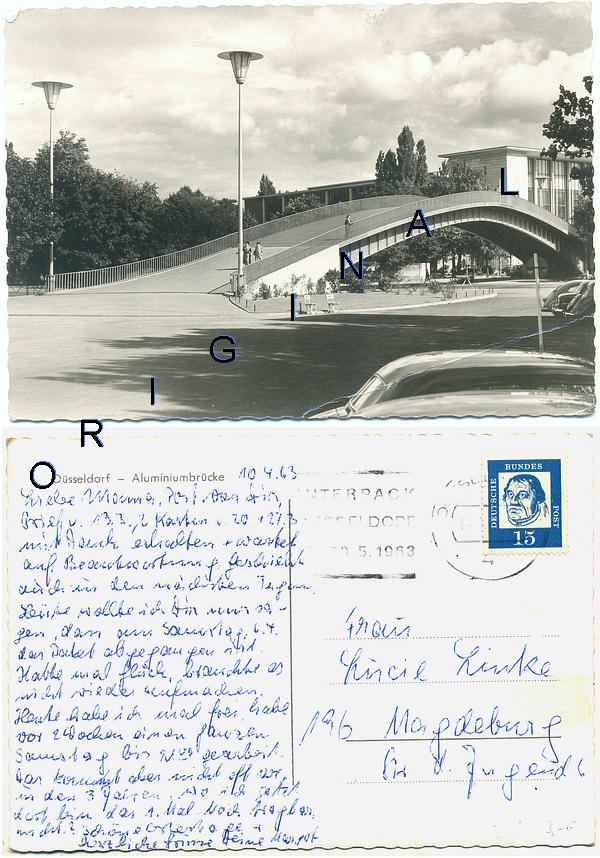 ORIGINAL
Düsseldorf – Aluminiumbrücke 10.4.63
INTERPACK
DÜSSELDORF
5.1963
DEUTSCHE BUNDES POST
15
Liebe Mama, Post von Dir,
Brief v. 13.3., 2 Karten v. 20 + 27.3.
mit Dank erhalten + wartet
auf Beantwortung, geschieht
auch in den nächsten Tagen.
Heute wollte ich Dir nur sa-
gen, dass am Samstag, 6.4.
das Paket abgegangen ist.
Hatte mal Glück, brauchte es
nicht wieder aufmachen.
Heute habe ich mal frei, habe
vor 2 Wochen einen ganzen
Samstag bis gearbeitet.
Das kommt aber nicht oft vor,
in den 3 Jahren, wo ich jetzt
dort bin das 1. Mal. Noch tragbar,
nicht? Schöne Ostertage +
herzliche Grüsse Deine Margot
Frau
Lucie Linke
196 Magdeburg
Str. d. Jugend 6